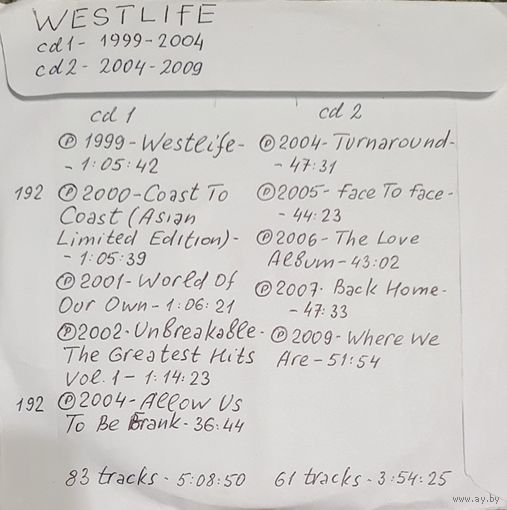 WESTLIFE
cd1- 1999-2004
cd2- 2004-2009
cd 1
Ⓟ 1999-Westlife-
- 1:05:42
192 Ⓟ 2000-Coast To
Coast (Asian
Limited Edition)-
- 1:05:39
Ⓟ 2001-World Of
Our Own-1:06:21
Ⓟ 2002-Unbreakable-
The Greatest Hits
Vol. 1-1:14:23
192 Ⓟ 2004-Allow Us
To Be Frank-36:44
83 tracks-5:08:50
cd 2
Ⓟ 2004-Turnaround-
-47:31
Ⓟ 2005-Face To Face-
-44:23
Ⓟ 2006-The Love
Album-43:02
Ⓟ 2007-Back Home-
-47:33
Ⓟ 2009-Where We
Are-51:54
61 tracks-3:54:25
www.ay.by